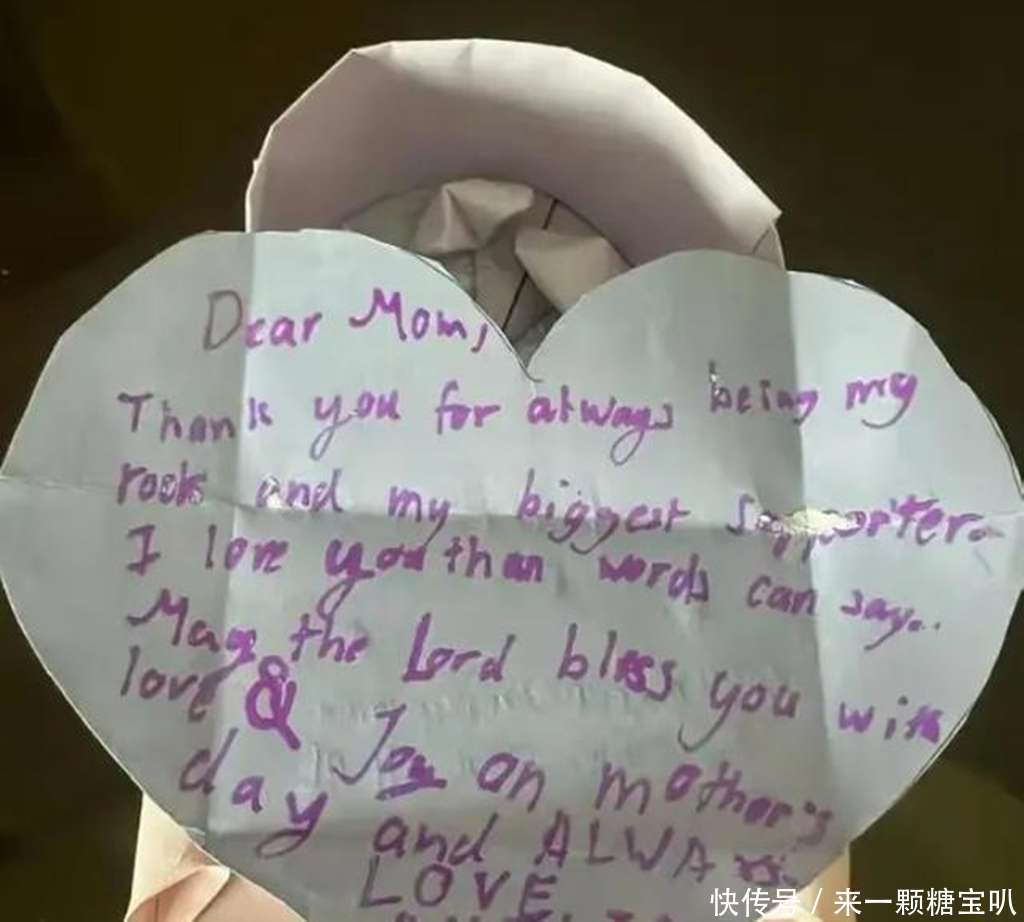 Dear Mom,
Thank you for always being my
rock and my biggest supporter.
I love you than words can say..
May the Lord bless you with
love & Joy on mother's
day and ALWAYS.
LOVE
快传号 / 来一颗糖宝叭